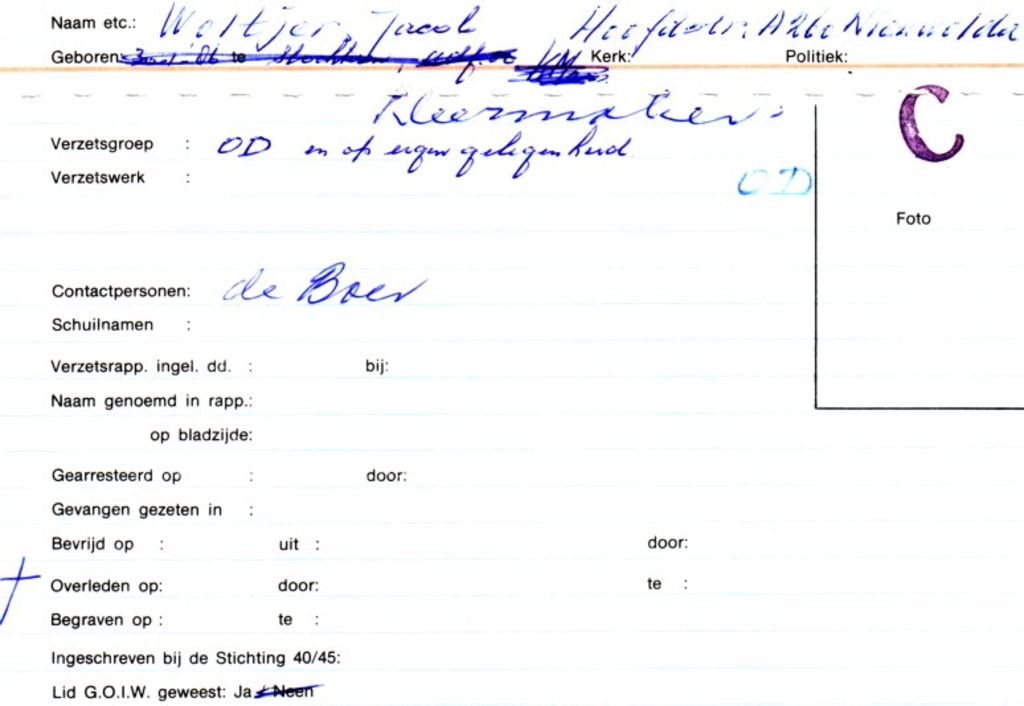 Naam etc.: Woltjer, Jacob Hoofdstr. A26e Nieuwolda
Geboren: te Kerk: Politiek:
Kleermaker.
C
Verzetsgroep : OD en op eigen gelegenheid
Verzetswerk :
OD
Foto
Contactpersonen: de Boer
Schuilnamen :
Verzetsrapp. ingel. dd. : bij:
Naam genoemd in rapp.:
op bladzijde:
Gearresteerd op : door:
Gevangen gezeten in :
Bevrijd op : uit : door:
Overleden op: door: te :
Begraven op : te :
Ingeschreven bij de Stichting 40/45:
Lid G.O.I.W. geweest: Ja / Neen